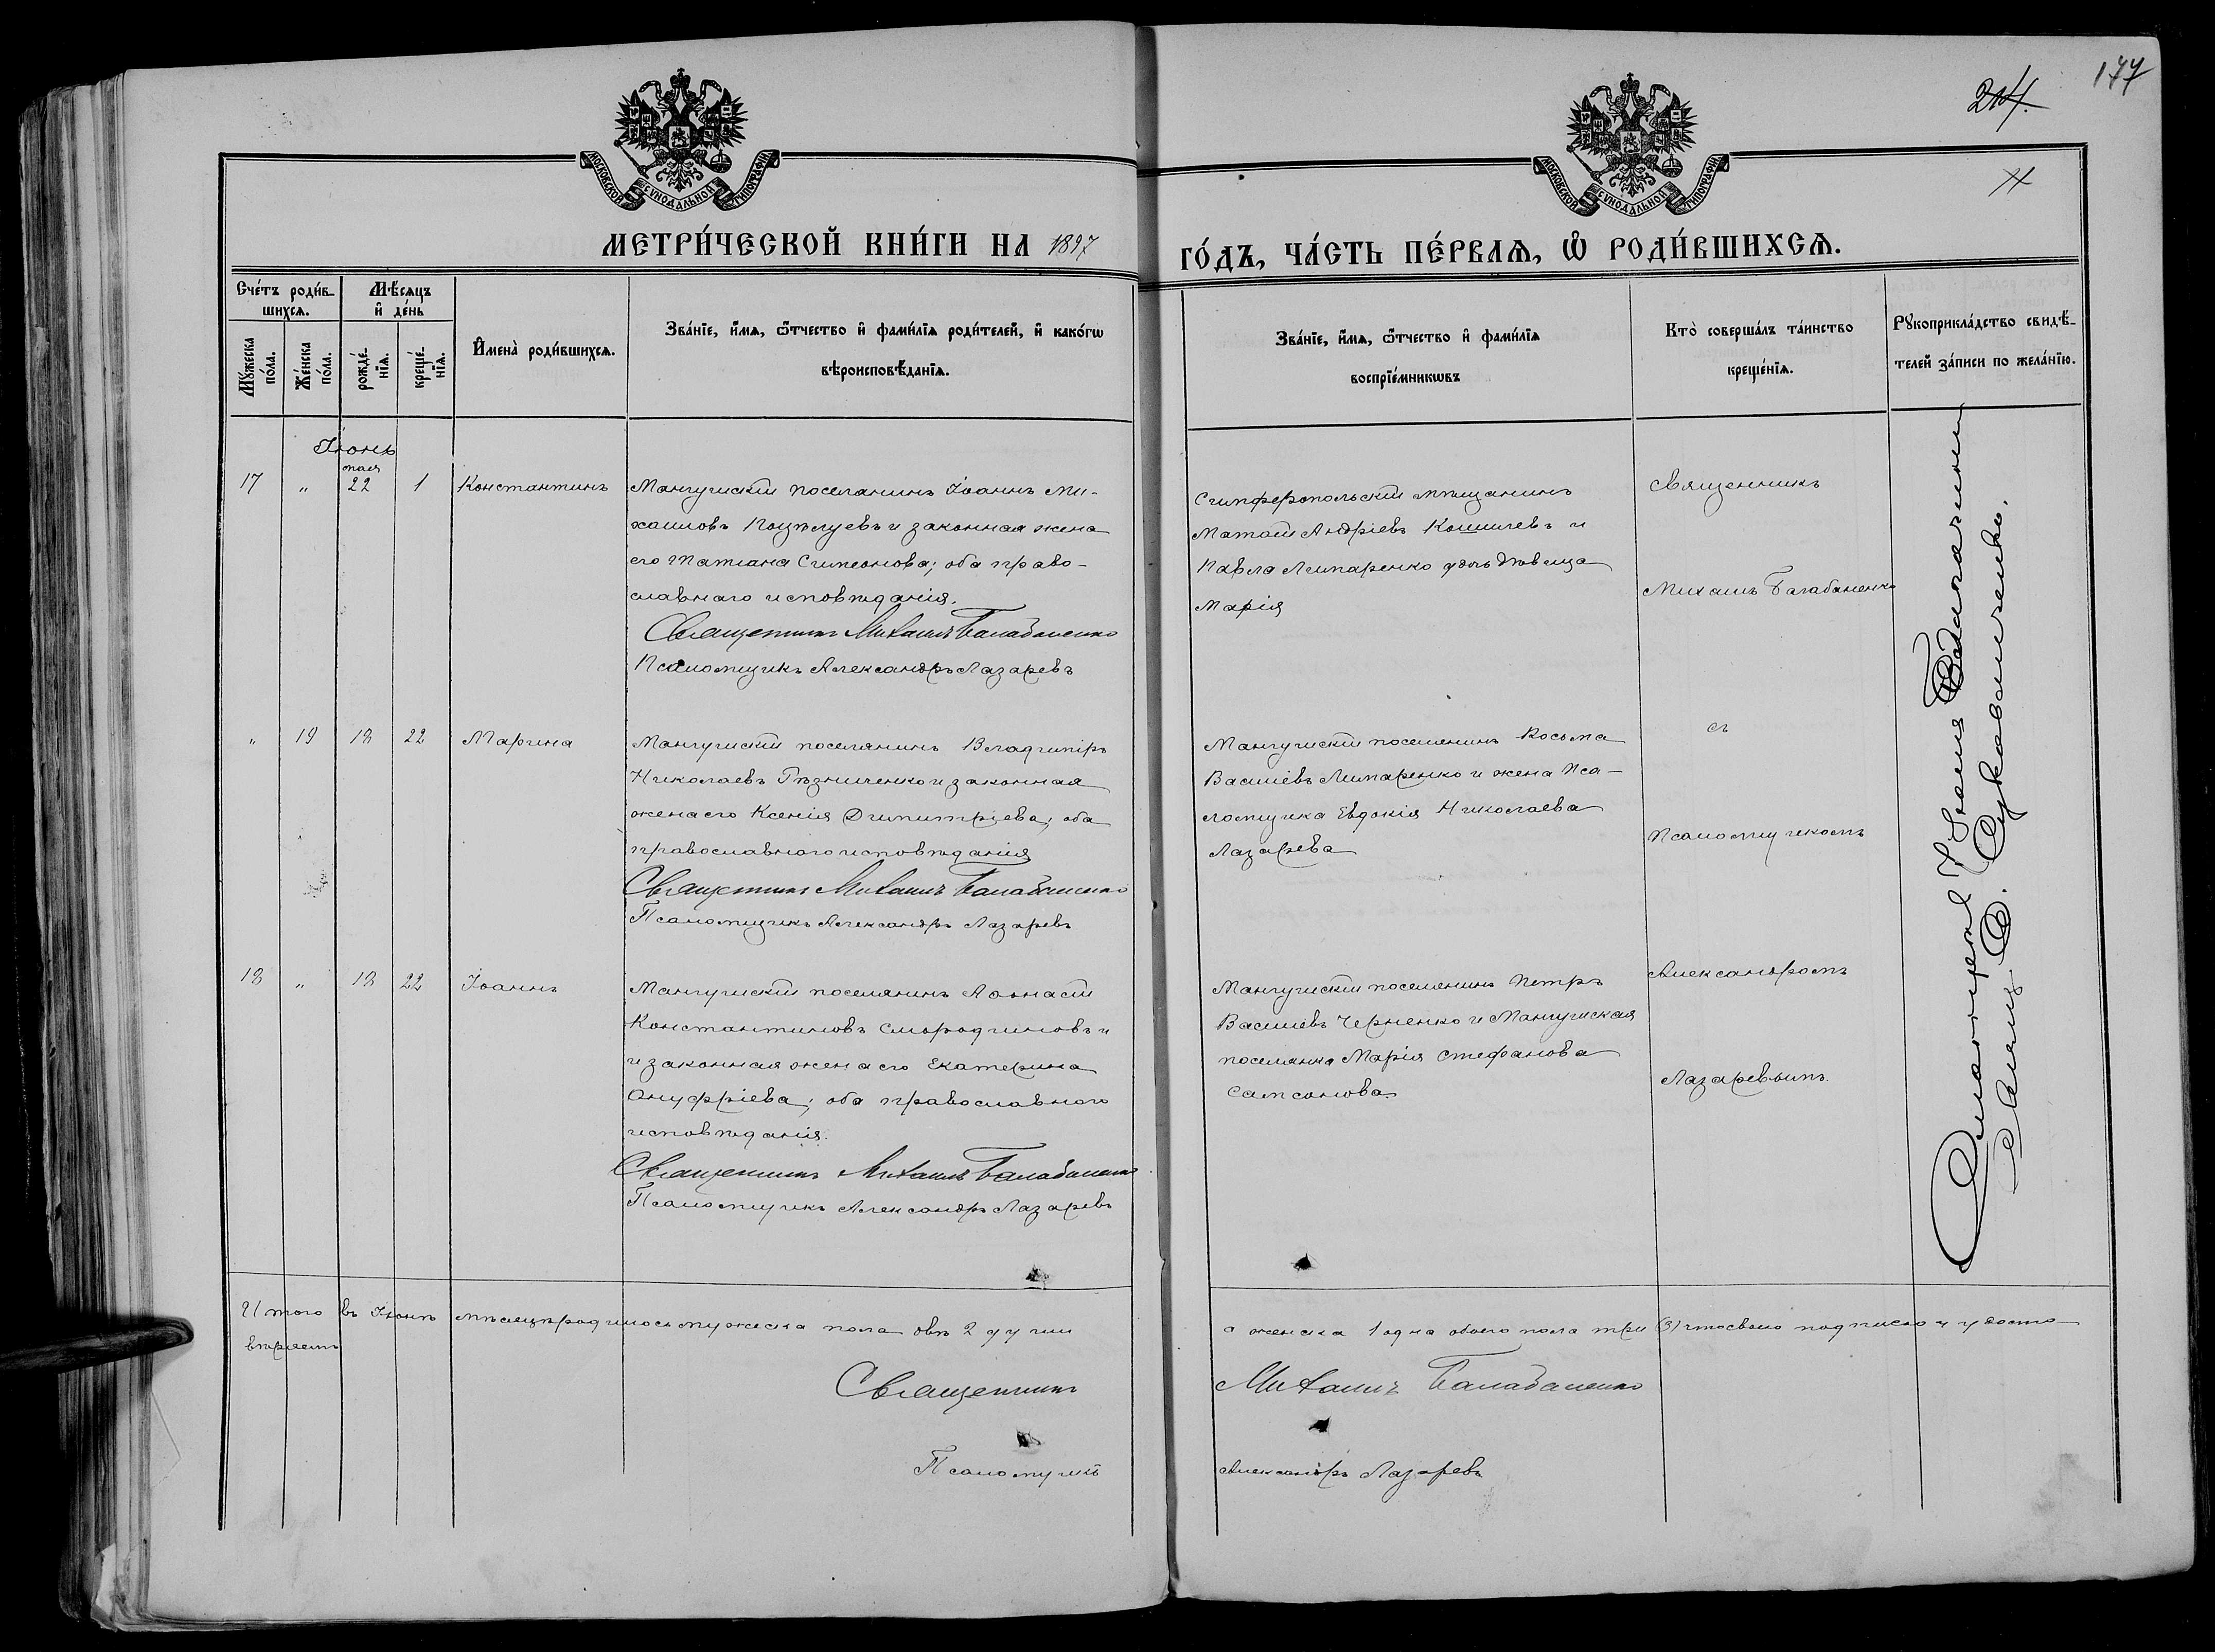 177
214.
МОСКОВСКОЙ СУНОДАЛЬНОЙ ТИПОГРАФІИ
МОСКОВСКОЙ СУНОДАЛЬНОЙ ТИПОГРАФІИ
МЕТРИ́ЧЕСКОЙ КНИ́ГИ НА 1897
ГО́ДЪ, ЧА́СТЬ ПЕ́РВАѦ, Ѽ РОДИ́ВШИХСѦ.
Сче́тъ роди́в-
шихсѧ.
Мѣ́сѧцъ
и҆ де́нь
Мꙋ́жеска
по́ла.
Же́нска
по́ла.
рожде́-
нїѧ.
креще́-
нїѧ.
И҆мена̀ роди́вшихсѧ.
Зва́нїе, и҆́мѧ, ѻ҆́тчество и҆ фами́лїѧ роди́телей, и҆ како́гѡ
вѣроисповѣ́данїѧ.
Зва́нїе, и҆́мѧ, ѻ҆́тчество и҆ фами́лїѧ
воспрїе́мникѡвъ
Кто̀ соверша́лъ та́инство
креще́нїѧ.
Рꙋкоприкла́дство свидѣ́-
телей за́писи по жела́нїю.
Іюнь
17 " мая 22 1 Константинъ
Мангушскій поселянинъ Іоаннъ Ми-
хаиловъ Поцѣлуевъ и законная жена
его Татіана Симеонова; оба право-
славнаго исповѣданія.
Священникъ Михаилъ Балабаненко
Псаломщикъ Александръ Лазаревъ
Симферопольскій мѣщанинъ
Матѳій Андріевъ Кошилевъ и
Павла Литаренко дочь дѣвица
Марія
Священникъ
Михаилъ Балабаненко
" 19 18 22 Марина
Мангушскій поселянинъ Владиміръ
Николаевъ Рѣзниченко и законная
жена его Ксенія Димитріева; оба
православнаго исповѣданія
Священникъ Михаилъ Балабаненко
Псаломщикъ Александръ Лазаревъ
Мангушскій поселянинъ Косьма
Василіевъ Литаренко и жена Пса-
ломщика Евдокія Николаева
Лазарева
съ
Псаломщикомъ
18 " 18 22 Іоаннъ
Мангушскій поселянинъ Аѳонасій
Константиновъ Смородиновъ и
и законная жена его Екатерина
Ануфріева; оба православнаго
исповѣданія.
Священникъ Михаилъ Балабаненко
Псаломщикъ Александръ Лазаревъ
Мангушскій поселянинъ Петръ
Василіевъ Черненко и Мангушская
поселянка Марія Стефанова
Самсонова
Александромъ
Лазаревымъ.
Итого въ Іюнѣ мѣсяцѣ родилось мужеска пола двѣ 2 души
а женска 1 одна обоего пола три (3) что своею подписью и удосто-
вѣряемъ
Священникъ
Михаилъ Балабаненко
Псаломщикъ
Александръ Лазаревъ